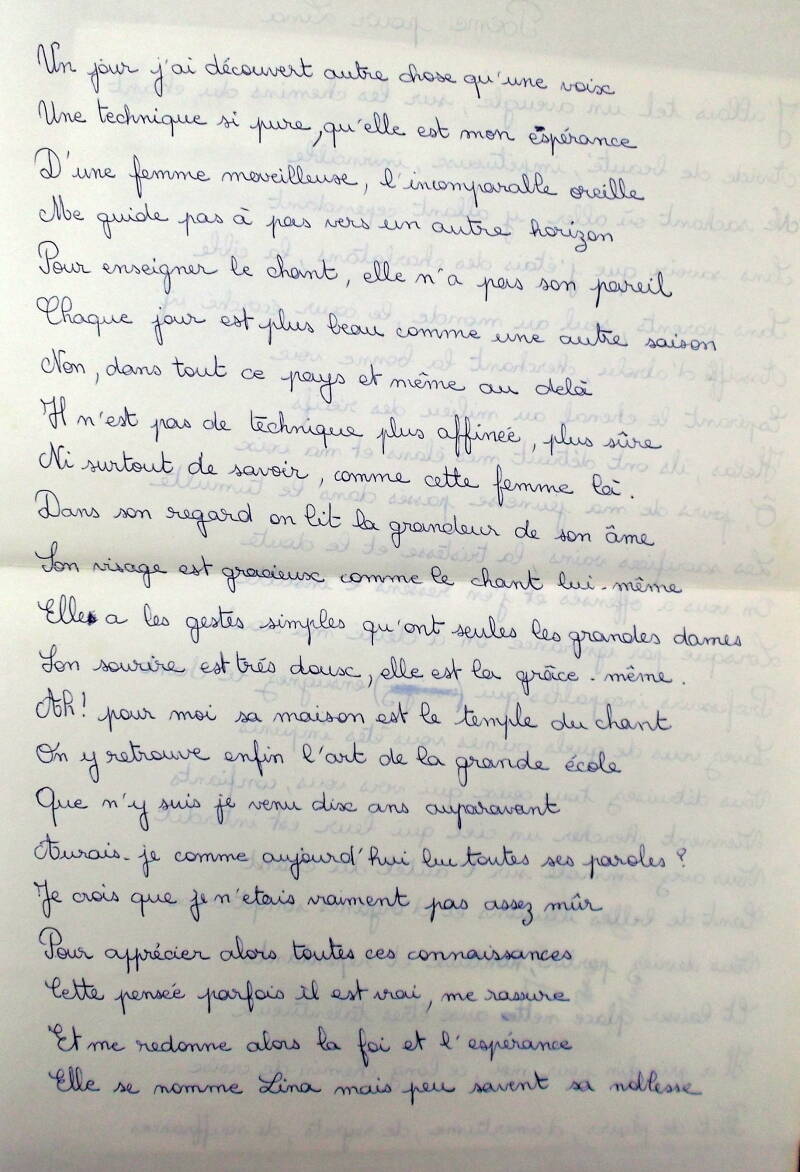 Un jour j'ai découvert autre chose qu'une voix
Une technique si pure, qu'elle est mon espérance
D'une femme merveilleuse, l'incomparable oreille
Me guide pas à pas vers un autre horizon
Pour enseigner le chant, elle n'a pas son pareil
Chaque jour est plus beau comme une autre saison
Non, dans tout ce pays et même au delà
Il n'est pas de technique plus affineé, plus sûre
Ni surtout de savoir, comme cette femme là.
Dans son regard on lit la grandeur de son âme
Son visage est gracieux comme le chant lui-même
Elle a les gestes simples qu'ont seules les grandes dames
Son sourire est trés doux, elle est la grâce-même.
Ah! pour moi sa maison est le temple du chant
On y retrouve enfin l'art de la grande école
Que n'y suis je venu dix ans auparavant
Aurais-je comme aujourd'hui bu toutes ses paroles ?
Je crois que je n'etais vraiment pas assez mûr
Pour apprécier alors toutes ces connaissances
Cette penseé parfois il est vrai, me rassure
Et me redonne alors la foi et l'espérance
Elle se nomme Lina mais peu savent sa noblesse